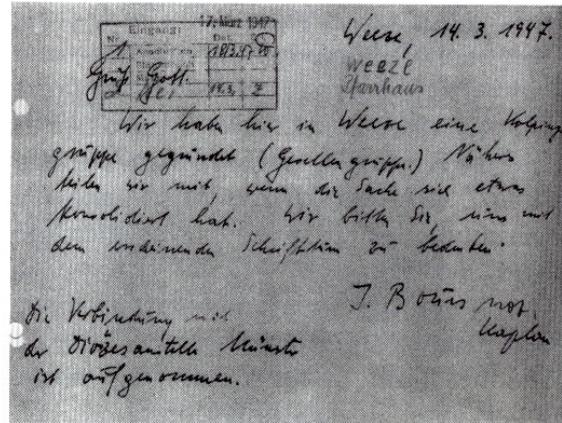 Eingang: 17. März 1947
Weeze, 14. 3. 1947.
weeze
Pfarrhaus
Grüß Gott.
Wir haben hier in Weeze eine Kolping
gruppe gegründet (Gesellengruppe.) Nähers
teilen wir mit, wenn die Sache sich etwas
konsolidiert hat. Wir bitten Sie, uns mit
dem erscheinenden Schrifttum zu bedenken.
J. Bours
Kaplan
Die Verbindung mit
der Diözesanstelle Münster
ist aufgenommen.